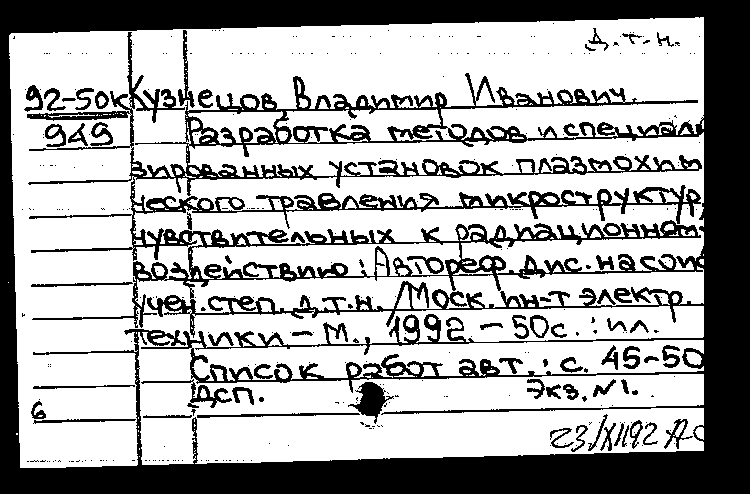 Д.т.н.
92-50к Кузнецов Владимир Иванович.
949 Разработка методов и специали
зированных установок плазмохими
ческого травления микроструктур,
чувствительных к радиационному
воздействию: Автореф. дис. на соис
учен. степ. д.т.н. /Моск. ин-т электр.
техники. - М., 1992. - 50с. : ил.
Список работ авт.: с. 45-50
ДСП. Экз. №1.
6
23/XII92